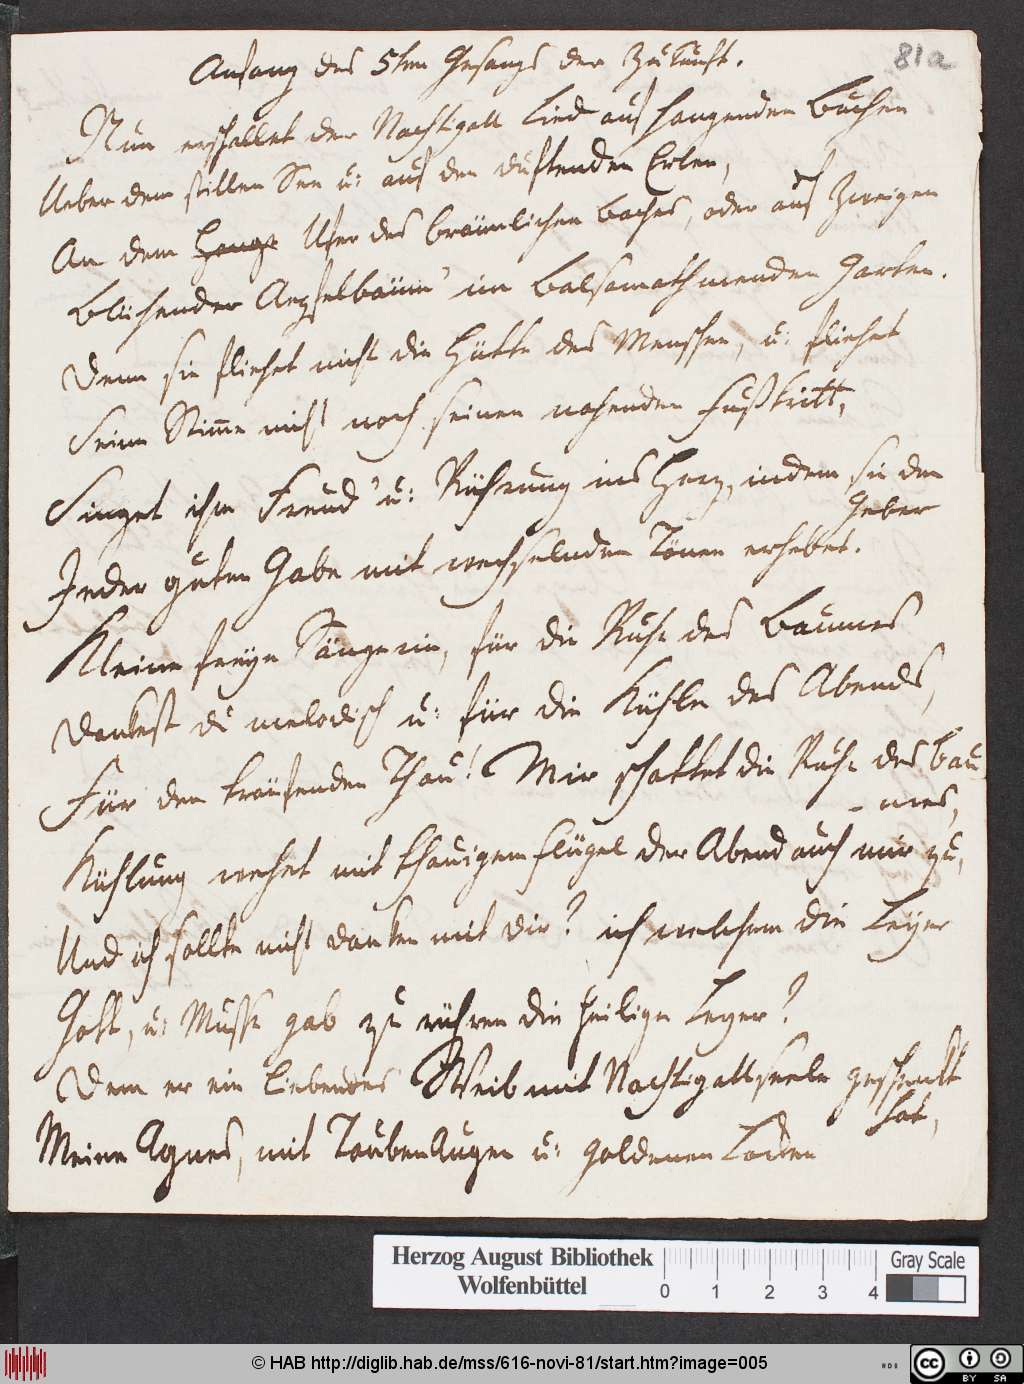 81a
Anfang des 5ten Gesangs der Zukunft.
Nun erschallet der Nachtigall Lied aus hangenden Buchen
Ueber dem stillen See u: aus den duftenden Erlen,
An dem Hange Ufer des bräunlichen Baches, oder aus Zweigen
Blühender Aepfelbäum' im Balsamathmenden Garten.
Denn sie fliehet nicht die Hütte des Menschen, u: fliehet
Seine Stimme nicht noch seinen nahenden Fußtritt,
Singet ihm Freud' u: Rührung ins Herz, indem sie den
Geber
Jeder guten Gabe mit wechselnden Tönen erhebet.
Kleine freye Sängerin, für die Ruhe des Baumes
Dankest du melodisch u: für die Kühle des Abends,
Für den träufenden Thau! Mir schattet die Ruhe des Bau
- mes,
Kühlung wehet mit thauigem Flügel der Abend auch mir zu,
Und ich sollte nicht danken mit dir? ich welchem die Leyer
Gott, u: Musse gab zu rühren die heilige Leyer?
Dem er ein liebendes Weib mit Nachtigallseele geschenkt
hat,
Meine Agnes, mit TaubenAugen u: goldenen Locken
Herzog August Bibliothek
Wolfenbüttel
0 1 2 3 4
Gray Scale
© HAB http://diglib.hab.de/mss/616-novi-81/start.htm?image=005
cc BY SA